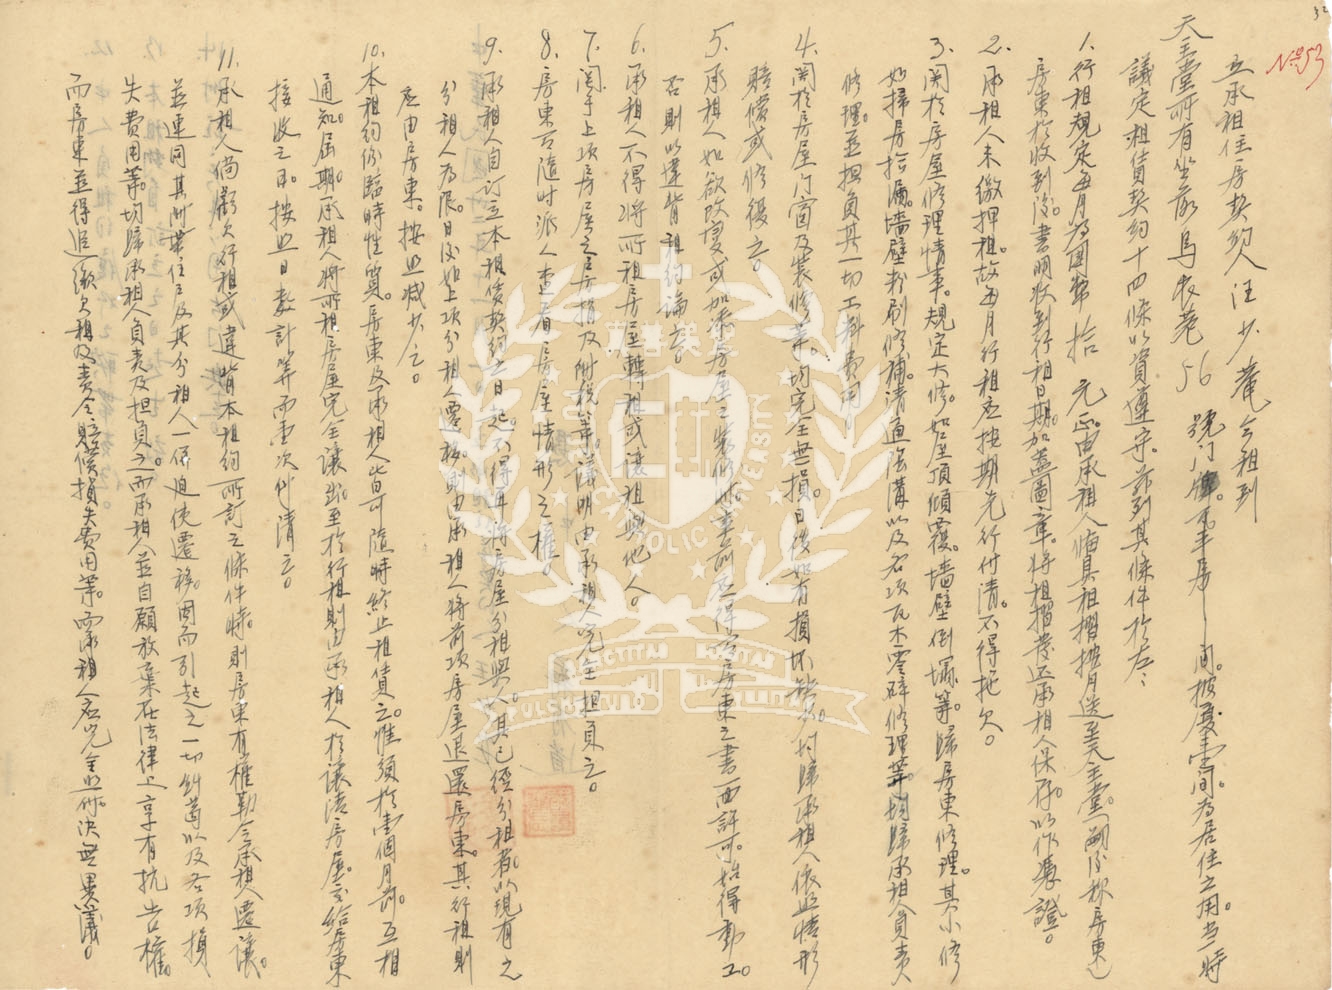 32
No 53
立承租住房契約人汪少菴今租到
天主堂所有坐落馬衣巷56號門牌。平房一間。披廈壹間。為居住之用。當時
議定租賃契約十四條以資遵守。茲列其條件於左：
1. 行租規定每月為國幣 拾 元正。由承租人備具租摺按月送至天主堂。（嗣後称房東）
房東於收到後。書明收到行租日期。加蓋圖章。將租摺發还承租人保存。以作憑證。
2. 承租人未繳押租。故每月行租应按期先行付清。不得拖欠。
3. 関於房屋修理情事。規定大修。如屋頂傾覆。墻壁倒塌等。歸房東修理。其小修
如掃房拾漏。墻壁粉刷修補。清通陰溝以及各項瓦木零碎修理等。均歸承租人負責
修理。並担負其一切工料費用。
4. 関於房屋門窗及裝修等。均完全無損。日後如有損坏缺少。均歸承租人依照情形
賠償或修復之。
5. 承租人如欲改變或加添房屋之裝修時。事前应得房東之書面許可。始得動工。
否則以違背租約論之。
6. 承租人不得將所租房屋轉租或讓租與他人。
7. 関于上項房屋之房捐及附稅等。議明由承租人完全担負之。
8. 房東有隨時派人查看房屋情形之權。
9. 承租人自訂立本租賃契約之日起。不得再將房屋分租與人。其已經分租者。以現有之
分租人為限。日後如上項分租人遷移。則由承租人將前項房屋退還房東。其行租則
应由房東。按照減少之。
10. 本租約係臨時性質。房東及承租人皆可隨時終止租賃之。惟須於壹個月前。互相
通知。屆期。承租人將所租房屋完全讓出。至於行租則由承租人於讓清房屋。交給房東
接收之日。按照日數計算而壹次付清之。
11. 承租人倘虧欠行租或違背本租約所訂之條件時。則房東有權勒令承租人遷讓。
並連同其附帶住戶及其分租人一併迫使遷移。因而引起之一切糾葛以及各項損
失費用等。均歸承租人負責及担負之。而承租人並自願放棄在法律上享有抗告權。
而房東並得追繳欠租及責令賠償損失費用等。而承租人应完全照办。決無異議。